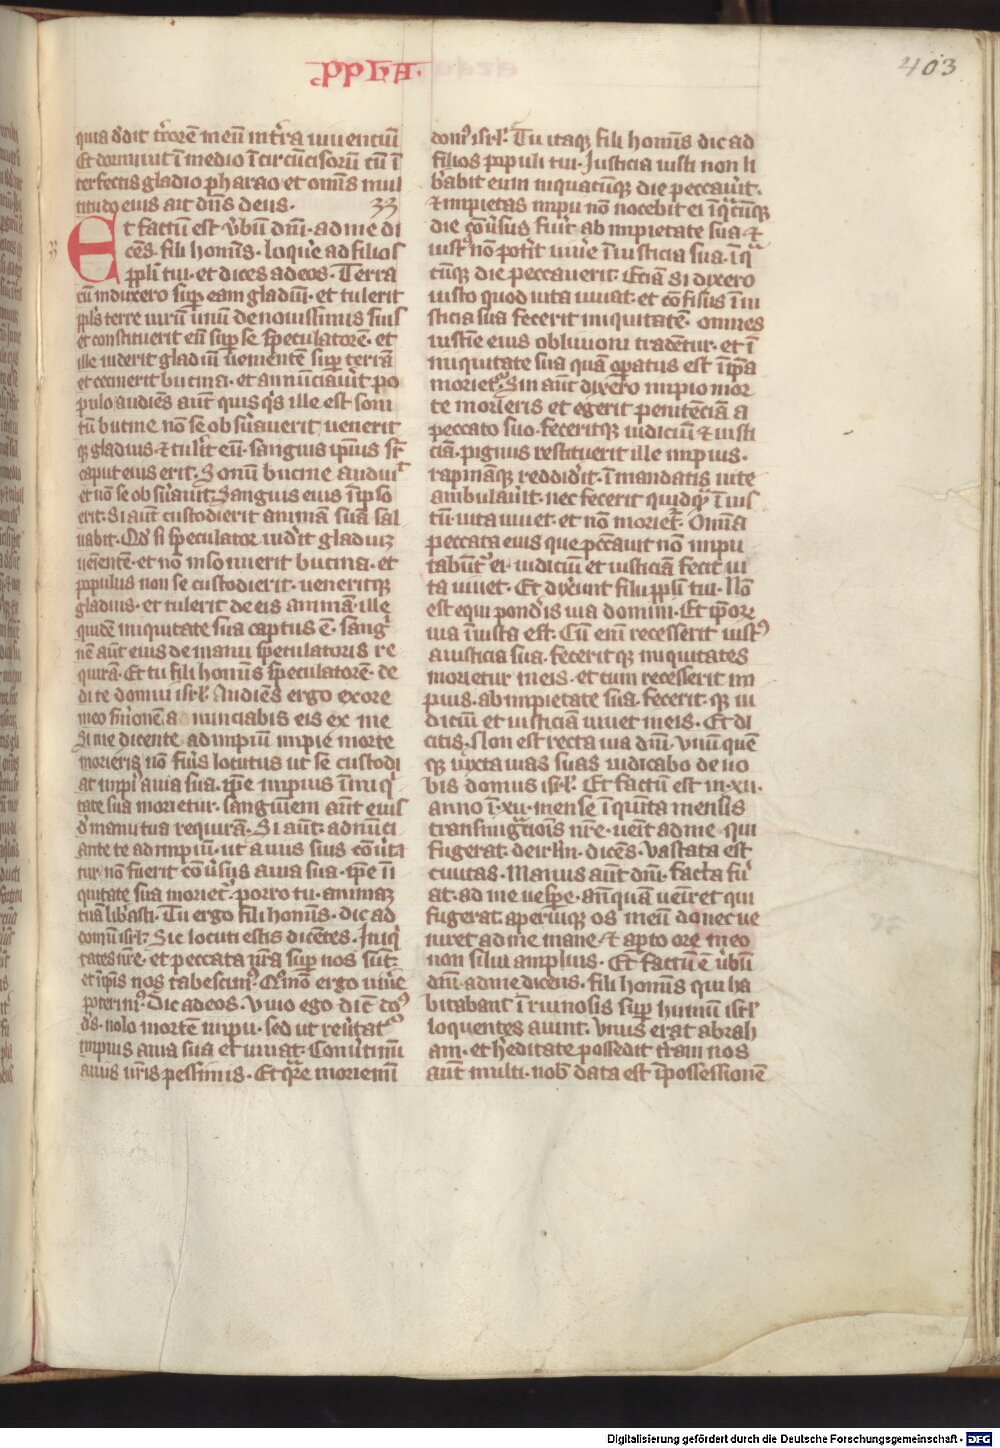 ꝓph̄a.
403
quia dedit t̄rorē meū int̄ra uiuentiū
Et dormiuit ī medio īcircūcisorū cū ī
terfectis gladio pharao et om̄is mul
titudo eius ait dn̄s deus. 33
Et factū est v̄bū dn̄i. ad me di
cēs. fili homīs. loquere ad filios
pp̄li tui. et dices ad eos. Terra
cū induxero suꝑ eam gladiū. et tulerit
ppl̄s terre uirū unū de nouissimis suis
et constituerit eū suꝑ se speculatorē. et
ille uiderit gladiū uenientē suꝑ terrā
et cecinerit bucina. et annūciauīt po
pulo audiēs aūt quisq̇s ille est soni
tū bucine nō se obs̄uauerit. uenerit
qꝫ gladius. et tulīt eū. sanguis ipsius sr̄
caput eius erit. Sonū bucine audiuit
et nō se obs̄uauit. Sanguis eius ī ipso
erit. Si aūt custodierit animā suā sal
uabit. Qd̓ si speculator uid̓it gladiuꝫ
ueniētē. et nō insonuerit bucina. et
populus non se custodierit. ueneritqꝫ
gladius. et tulerit de eis animā. ille
quidē iniquitate sua captus ē. sangi
nē aūt eius de manu speculatoris re
quirā. Et tu fili homīs speculatorē. de
di te domui isrl̄. Audiēs ergo ex ore
meo s̄monē annunciabis eis ex me
Si me dicente ad impiū impie morte
morieris nō fūis locutus ut se custodi
at impi̓ a uia sua. ip̄e impius ī iniqi
tate sua morietur. sanguinem aūt eius
d̓ manu tua requirā. Si aūt. adnūci
ante te ad impiū. ut a uiis suis cōūta
tur. nō fuerit cōūsus a uia sua. ip̄e ī i
quitate sua moriet̄. porro tu. animaꝫ
tuā lib̓asti. Tu ergo fili homīs. dic ad
domū isrl̄. Sic locuti estis dicētes. Iniqi
tates n̄re. et peccata n̄ra suꝑ nos sūt.
et ī ipīs nos tabescim̓. Qūo ergo uiūe
poterim̓. Dic ad eos. Viuo ego dic̄ do̓
d̓s. nolo mortē impii. sed ut reūtat̄
impius a uia sua et uiuat. Conūtimī
a uiis ūris pessimis. Et qr̄e moriemī
dom̓ isrl̄. Tu itaqꝫ fili homīs dic ad
filios populi tui. Iusticia iusti non li
b̓abit eum in quacūqꝫ die peccauīt.
et impietas impii nō nocebit ei ī qcūqꝫ
die cōūsus fūit ab impietate sua. et
iust̓ nō potīt uiūe ī iusticia sua. ī qa
cūqꝫ die peccauerit. Etiā si dixero
iusto quod uita uiuat. et confisus ī iu
sticia sua fecerit iniquitatē. omnes
iustiē eius obliuioni tradētur. et ī
iniquitate sua quā oꝑatus est ī ip̄a
moriet̄. Sin aūt dixero impio mor
te morieris et egerit penitēciā a
peccato suo. feceritqꝫ iudiciū et iusti
ciā. pignus restituerit ille impius.
rapināqꝫ reddid̓it. ī mandatis uite
ambulauīt. nec fecerit quidqā īius
tū. uita uiuet. et nō moriet̄. Omīa
peccata eius que pccauit nō impu
tabūt̄ ei. iudiciū et iusticiā fecit ui
ta uiuet. Et dix̄unt filii pp̄li tui. Nō
est equi pond̓is uia domini. Et ip̄oꝝ
uia īiusta est. Cū enī recesserit iust̓
a iusticia sua. feceritqꝫ iniquitates
morietur in eis. et cum recesserit im
pius. ab impietate sua. fecerit qꝫ iu
diciū et iusticiā uiuet in eis. Et di
citis. Non est recta uia dn̄i. vnū quē
qꝫ iuxta uias suas iudicabo de uo
bis domus isrl̄. Et factū est in. xii.
anno ī. xii. mense ī quīta mensis
transmigr̄atiōis nr̄e. uēit ad me. qui
fugerat. de irl̄m. dicēs. Vastata est
ciuitas. Manus aūt dn̄i. facta fu̓
at. ad me uesꝑe. anqūā ueīret qui
fugerat. aperuitqꝫ os meū donec ue
niret ad me mane. et apto ore meo
non silui amplius. Et factū ē v̄bū
dn̄i. ad me dicens. fili homīs qui ha
bitabant ī ruinosis suꝑ humū isrl̄
loquentes aiunt. vnus erat abrah
am. et h̓editate possedit t̄ram nos
aūt multi. nob̄ data est ī possessionē
Digitalisierung gefördert durch die Deutsche Forschungsgemeinschaft - DFG